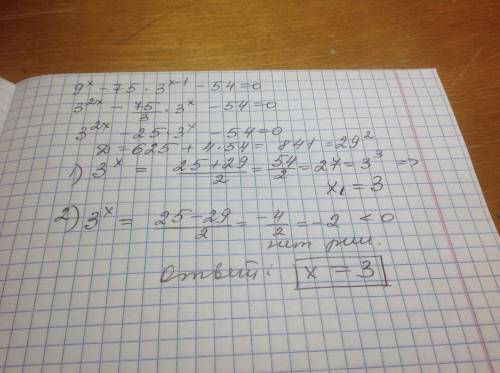 9^x − 75 · 3^{x−1} − 54 = 0
3^{2x} − 75/3 · 3^x − 54 = 0
3^{2x} − 25 · 3^x − 54 = 0
D = 625 + 4 · 54 = 841 = 29^2
1) 3^x = (25 + 29)/2 = 54/2 = 27 = 3^3 =>
x₁ = 3
2) 3^x = (25 − 29)/2 = −4/2 = −2 < 0
нет реш.
Ответ: x = 3